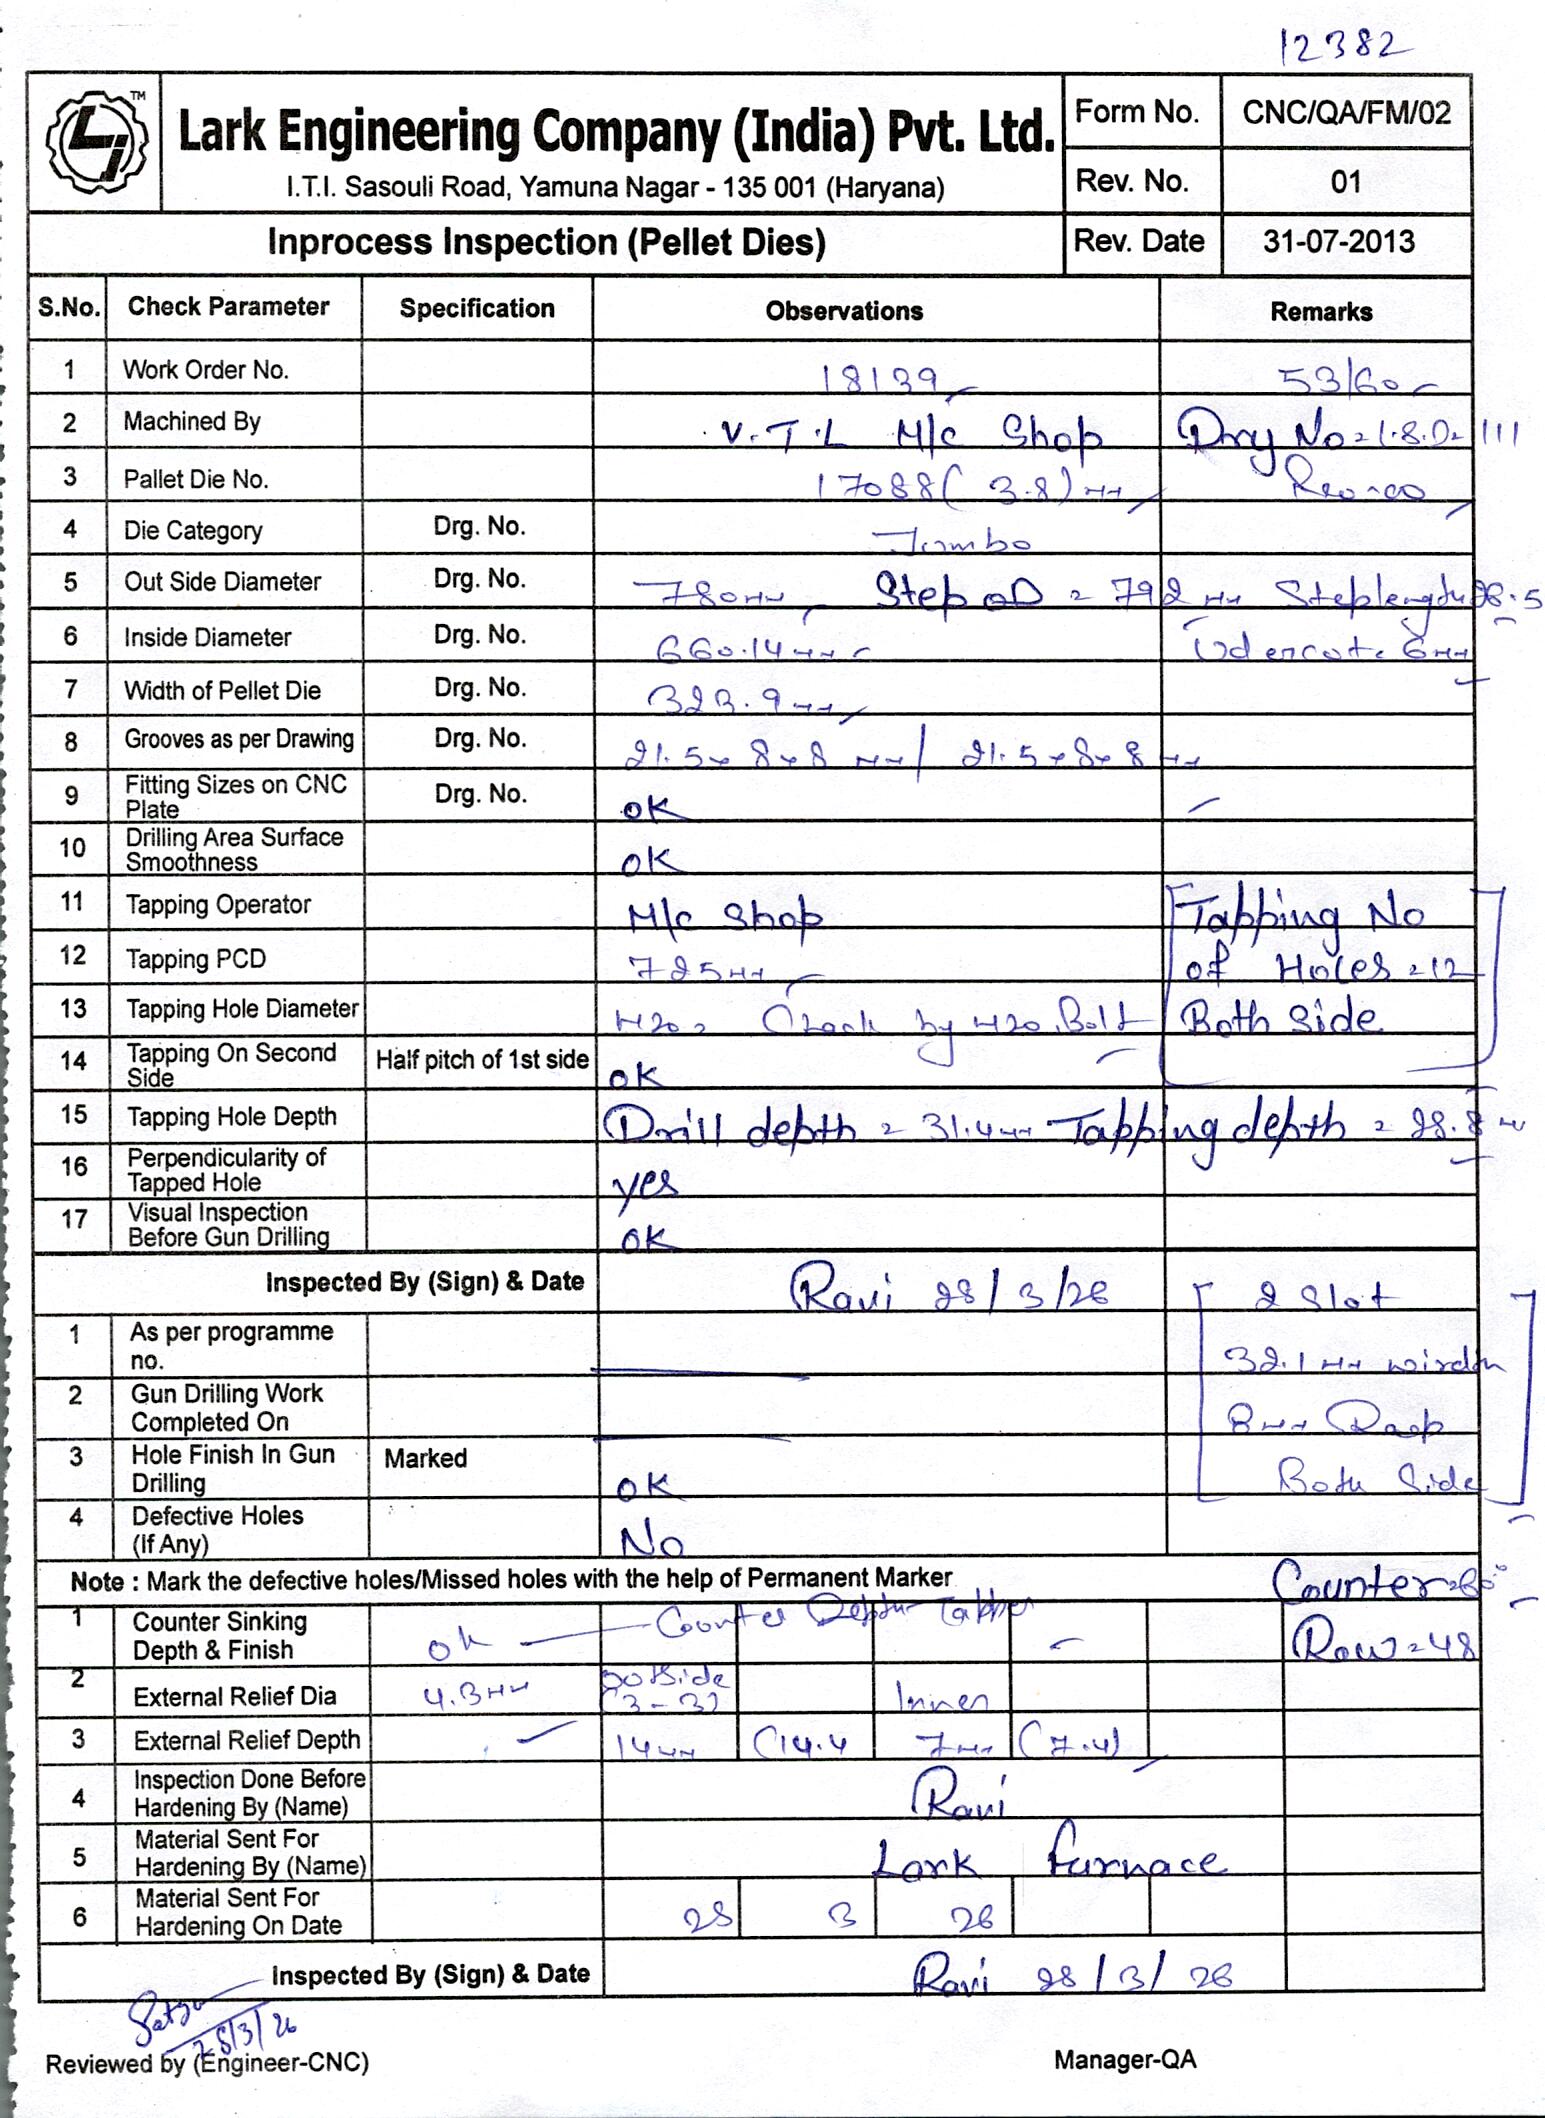 12382
TM
Lark Engineering Company (India) Pvt. Ltd.
I.T.I. Sasouli Road, Yamuna Nagar - 135 001 (Haryana)
Form No. CNC/QA/FM/02
Rev. No. 01
Inprocess Inspection (Pellet Dies) Rev. Date 31-07-2013
S.No. Check Parameter Specification Observations Remarks
1 Work Order No. 18139 53/60
2 Machined By V.T.L M/c Shop
3 Pallet Die No. 17088 (3.8)
4 Die Category Drg. No. Jumbo
5 Out Side Diameter Drg. No. 780 Step OD = 792 Step length 28.5
6 Inside Diameter Drg. No. 660.14
7 Width of Pellet Die Drg. No. 323.9
8 Grooves as per Drawing Drg. No. 21.5 x 8 x 8 / 21.5 x 8 x 8
9 Fitting Sizes on CNC Plate Drg. No. OK
10 Drilling Area Surface Smoothness OK
11 Tapping Operator M/c Shop Tapping No
12 Tapping PCD 725 of Holes = 12
13 Tapping Hole Diameter M20 = Check by M20 Bolt Both Side
14 Tapping On Second Side Half pitch of 1st side OK
15 Tapping Hole Depth Drill depth = 31.4 Tapping depth = 28.8
16 Perpendicularity of Tapped Hole yes
17 Visual Inspection Before Gun Drilling OK
Inspected By (Sign) & Date Ravi 28/3/26 2 Slot
1 As per programme no. 32.1
2 Gun Drilling Work Completed On 8
3 Hole Finish In Gun Drilling Marked OK Both Side
4 Defective Holes (If Any) No
Note : Mark the defective holes/Missed holes with the help of Permanent Marker Counter
1 Counter Sinking Depth & Finish ok Counter Depth Row = 48
2 External Relief Dia 4.3 outside Inner
3 External Relief Depth 14 (14.4 7 (7.4)
4 Inspection Done Before Hardening By (Name) Ravi
5 Material Sent For Hardening By (Name) Lark furnace
6 Material Sent For Hardening On Date 28 3 26
Inspected By (Sign) & Date Ravi 28/3/26
28/3/26
Reviewed by (Engineer-CNC) Manager-QA